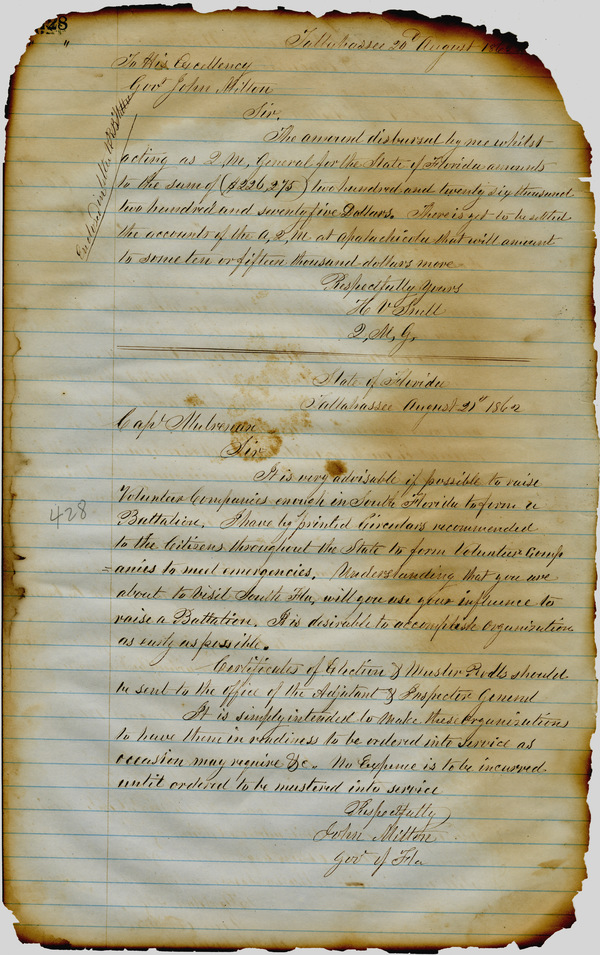 428
Tallahassee 20th August 186
To His Excellency
Govr John Milton
Sir,
The amount disbursed by me whilst
acting as Q. M. General for the State of Florida amounts
to the sum of ($226,275) two hundred and twenty six thousand
two hundred and seventy five Dollars. There is yet to be settled
the accounts of the A, Q, M. at Apalachicola that will amount
to some ten or fifteen thousand dollars more
Respectfully Yours
H V Snell
Q, M, G,
State of Florida
Tallahassee August 21st 1862
Capt Mulrenan
Sir
It is very advisable if possible to raise
Volunteer Companies enough in South Florida to form a
Battalion. I have by printed Circulars recommended
to the Citizens throughout the State to form Volunteer Comp
=anies to meet emergencies. Understanding that you are
about to visit South Fla, will you use your influence to
raise a Battalion. It is desirable to accomplish Organization
as early as possible.
428
Certificates of Election & Muster Rolls should
be sent to the office of the Adjutant & Inspector General
It is simply intended to make these Organizations
to have them in readiness to be ordered into service as
occasion may require &c. No Expense is to be incurred
until ordered to be mustered into service
Respectfully
John Milton
Govr of Fla